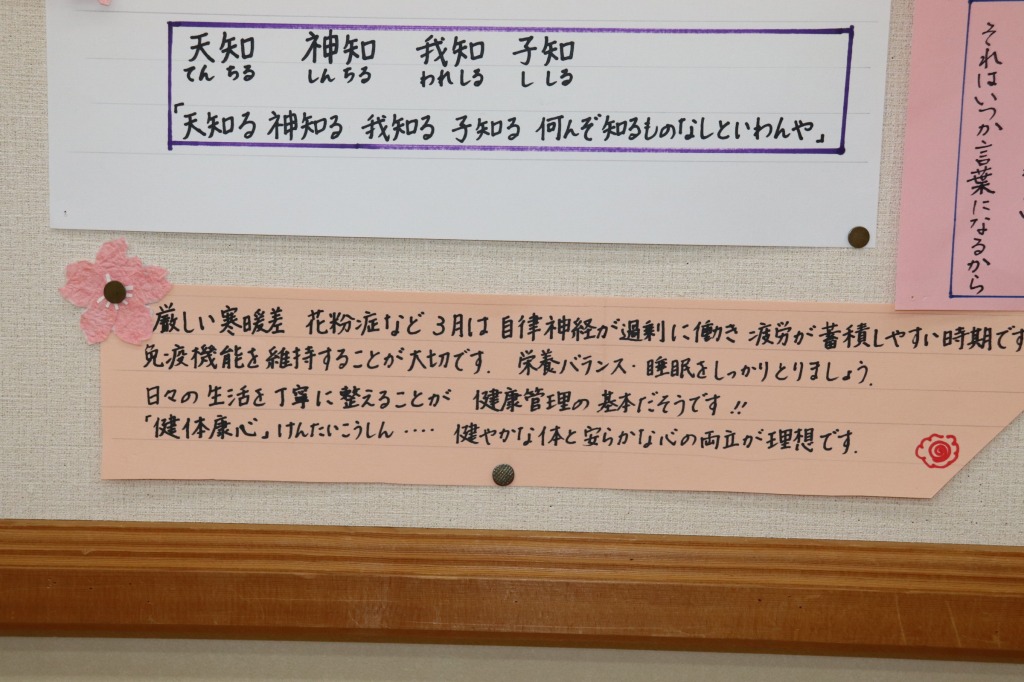 天知 神知 我知 子知
てんちる しんちる われしる ししる
「天知る 神知る 我知る 子知る 何んぞ知るものなしといわんや」
それはいつか言葉になるから
厳しい寒暖差 花粉症など 3月は 自律神経が過剰に働き 疲労が蓄積しやすい時期です
免疫機能を維持することが大切です. 栄養バランス・睡眠をしっかりとりましょう.
日々の生活を丁寧に整えることが 健康管理の基本だそうです!!
「健体康心」けんたいこうしん‥‥ 健やかな体と安らかな心の両立が理想です.